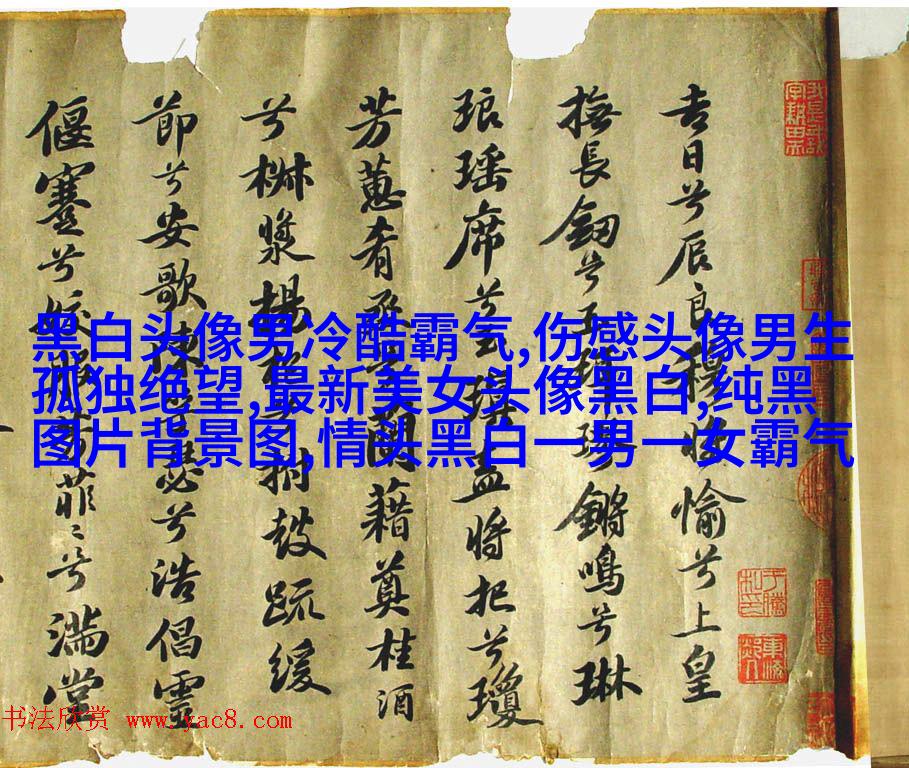 吉日兮辰良穆將愉兮上皇
撫長劔兮玉珥璆鏘鳴兮琳
琅瑶席兮玉瑱盍將把兮瓊
芳蕙肴烝兮蘭藉奠桂酒
兮椒漿揚枹兮拊鼓疏緩
節兮安歌陳竽瑟兮浩倡靈
偃蹇兮姣服芳菲〻兮滿堂
黑白头像男冷酷霸气,伤感头像男生
孤独绝望,最新美女头像黑白,纯黑
图片背景图,情头黑白一男一女霸气
书法欣赏 www.yac8.com